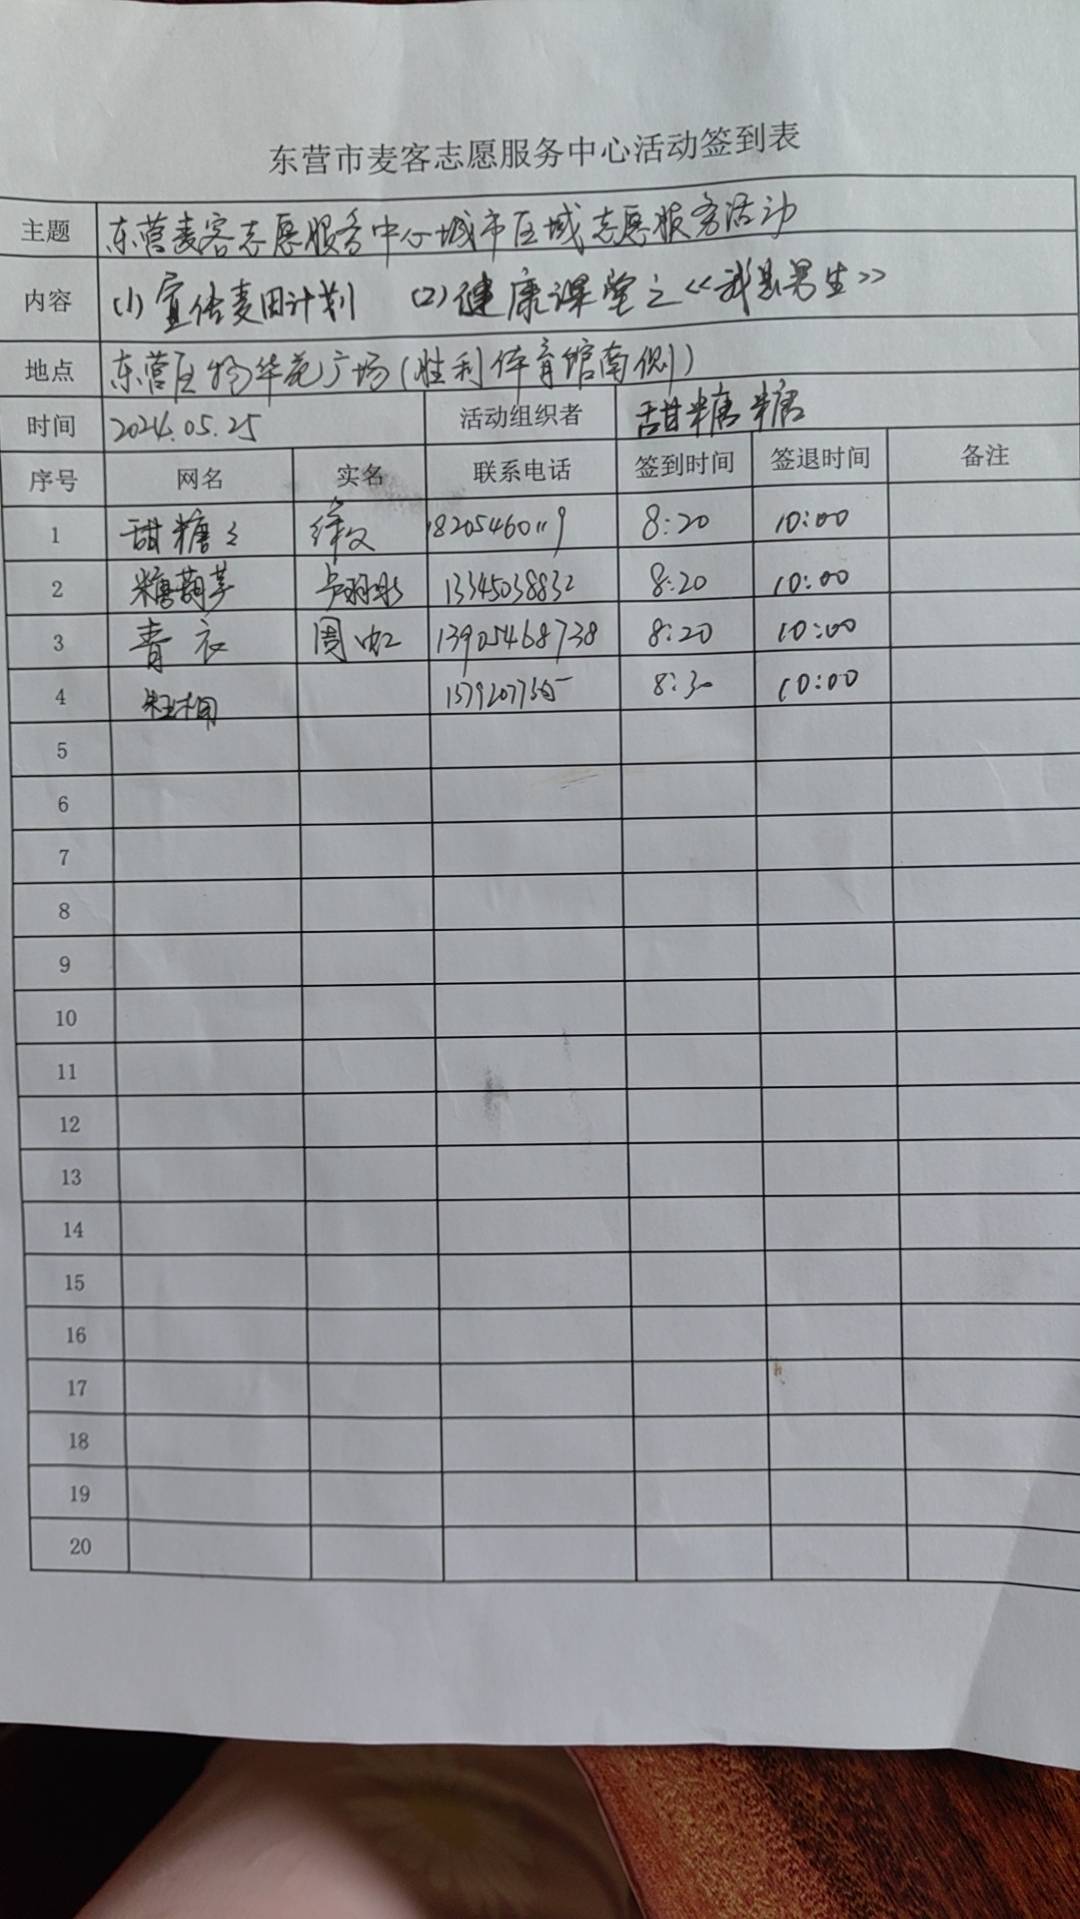 东营市麦客志愿服务中心活动签到表
主题 东营麦客志愿服务中心城市区域志愿服务活动
内容 (1) 宣传麦田计划 (2) 健康课堂之《我是男生》
地点 东营区物华苑广场(胜利体育馆南侧)
时间 2024.05.25 活动组织者 甜糖糖
序号 网名 实名 联系电话 签到时间 签退时间 备注
1 甜糖々 18205460119 8:20 10:00
2 糖葫芦 13345038832 8:20 10:00
3 青衣 周虹 13905468738 8:20 10:00
4 8:30 10:00
5
6
7
8
9
10
11
12
13
14
15
16
17
18
19
20